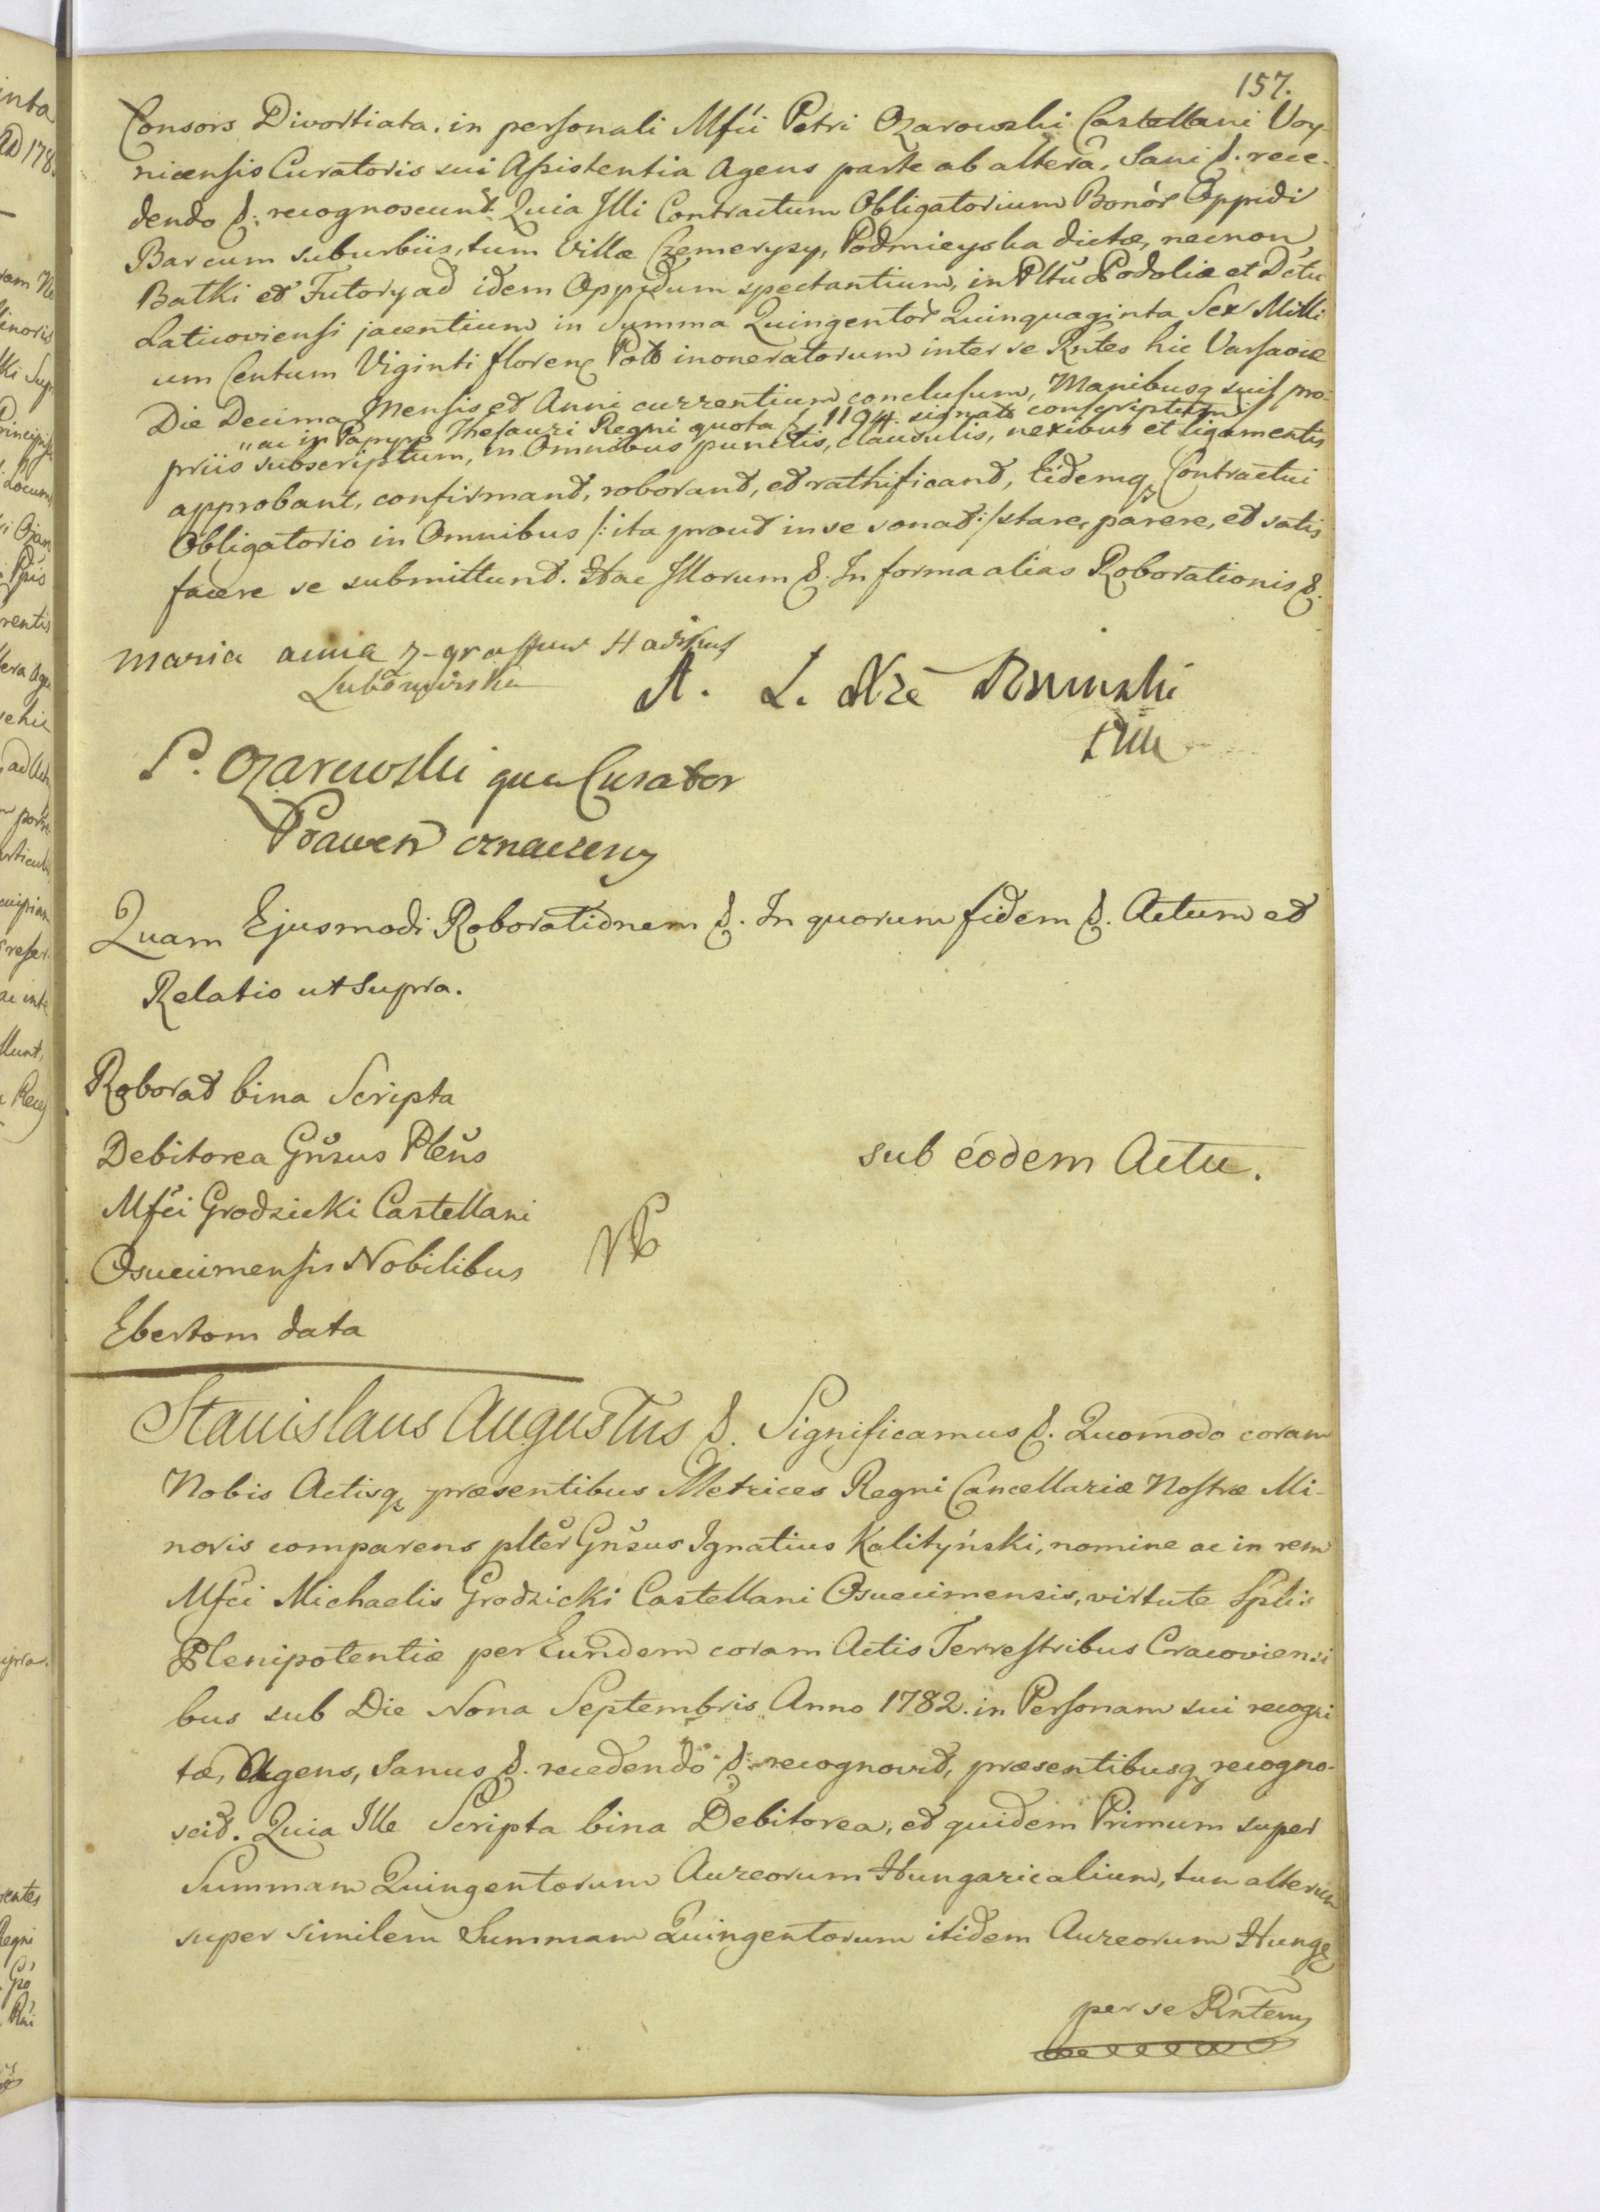 157.
Consors Divortiata, in personali Mfci Petri Ozarowski Castellani Voy-
nicensis Curatoris sui Assistentia Agens parte ab altera, Sani &. rece-
dendo &. recognoscunt. Quia Illi Contractum Obligatorium Bonor Oppidi
Bar cum suburbiis, tum Villæ Czemerysy, Podmieyska dictæ, necnon
Batki et Futory ad idem Oppidum spectantium, in Pltu Podoliæ et Dctu
Laticoviensi jacentium in Summa Quingentor Quinquaginta Sex Milli
um Centum Viginti floren Pol inoneratorum inter se Rntes hic Varsaviæ
Die Decima Mensis et Anni currentium conclusum, Manibusq suis pro-
" ac in Papyro Thesauri Regni quota 1194. signato conscriptum
priis subscriptum, in Omnibus punctis, clausulis, nexibus et ligamentis
approbant, confirmant, roborant, et rathificant, Eidemq Contractui
Obligatorio in Omnibus /: ita prout in se sonat :/ stare, parere, et satis
facere se submittunt. Hac Illorum &. In forma alias Roborationis &.
maria anna z Hadikuf
Lubomirska
A. L. Xze
P. Ozarowski qua Curator
Prawem oznaczeny
Quam Ejusmodi Roborationem &. In quorum fidem &. Actum et
Relatio ut Supra.
Roborat bina Scripta
Debitorea Gnsus Plens
Mfci Grodzicki Castellani
Osuecimensis Nobilibus
Ebertom data
sub eodem Actu.
Stanislaus Augustus &. Significamus &. Quomodo coram
Nobis Actisq præsentibus Metrices Regni Cancellariæ Nostræ Mi-
noris comparens plter Gnsus Ignatius Kalityński, nomine ac in rem
Mfci Michaelis Grodzicki Castellani Osuecimensis, virtute Splis
Plenipotentiæ per Eundem coram Actis Terrestribus Cracoviensi
bus sub Die Nona Septembris Anno 1782. in Personam sui recogni
tæ, Agens, Sanus &. recedendo &. recognovit, præsentibusq recogno-
scit. Quia Ille Scripta bina Debitorea, et quidem Primum super
Summam Quingentorum Aureorum Hungaricalium, tum alterum
super similem Summam Quingentorum itidem Aureorum Hung
per se Rntem